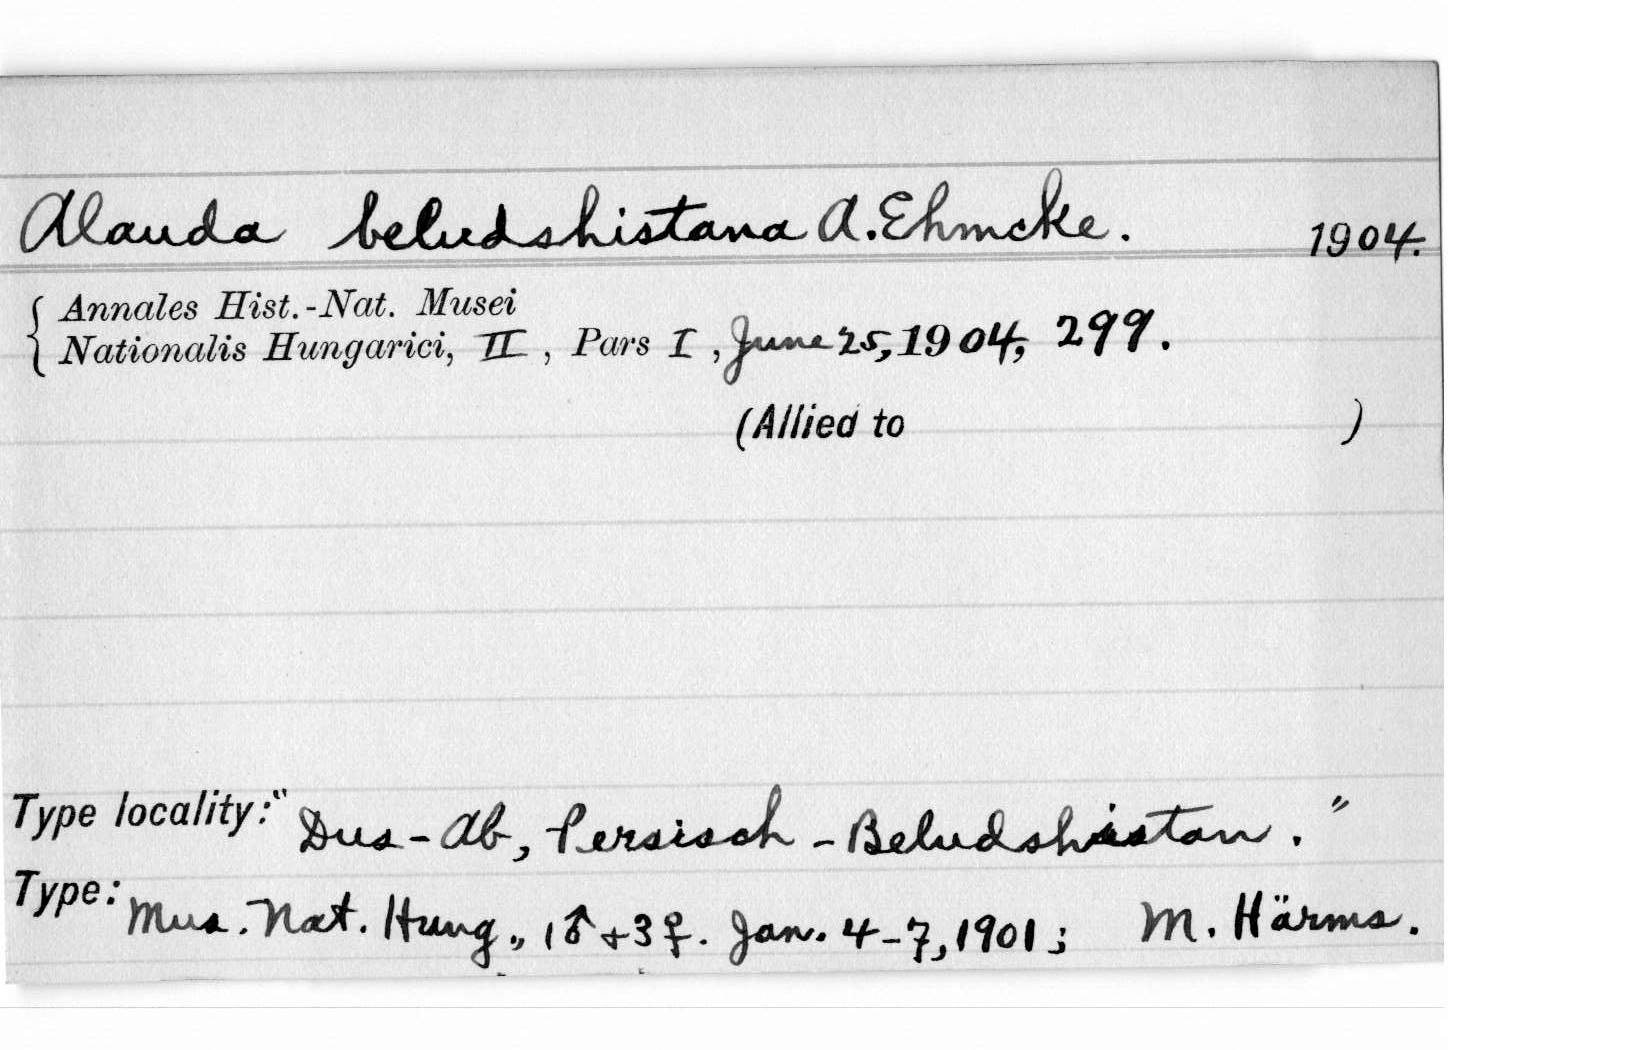 Alauda beludshistana A. Ehmcke. 1904.
{ Annales Hist.-Nat. Musei
Nationalis Hungarici, II, Pars I, June 25, 1904, 299.
(Allied to )
Type locality: "Dus-Ab, Persisch-Beludshistan."
Type: Mus. Nat. Hung., 1♂+3♀. Jan. 4-7, 1901; M. Härms.